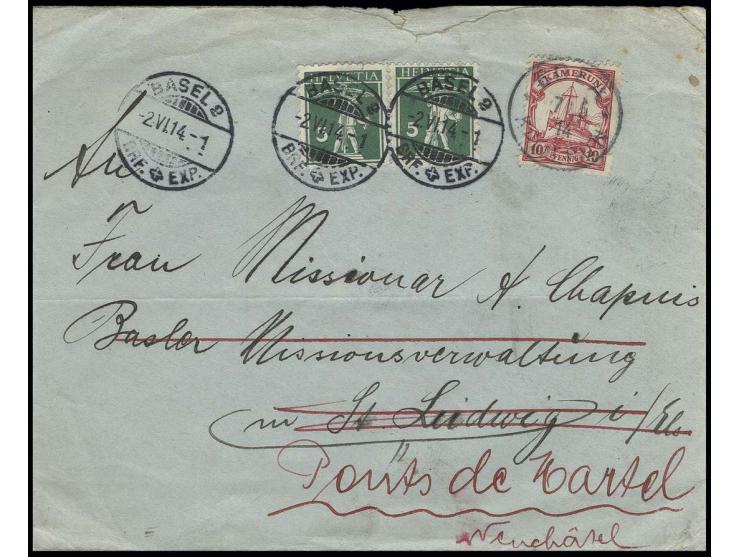 HELVETIA HELVETIA KAMERUN
BASEL 2 BASEL 2 BASEL 2
-2.VI.14.-1 -2.VI.14.-1 -2.VI.14.-1
5 5
10 PFENNIG 10
BRF. EXP. BRF. EXP. BRF. EXP.
An
Frau Missionar A. Chapuis
Basler Missionsverwaltung
in St. Ludwig i/Els
Ponts de Martel
Neuchâtel